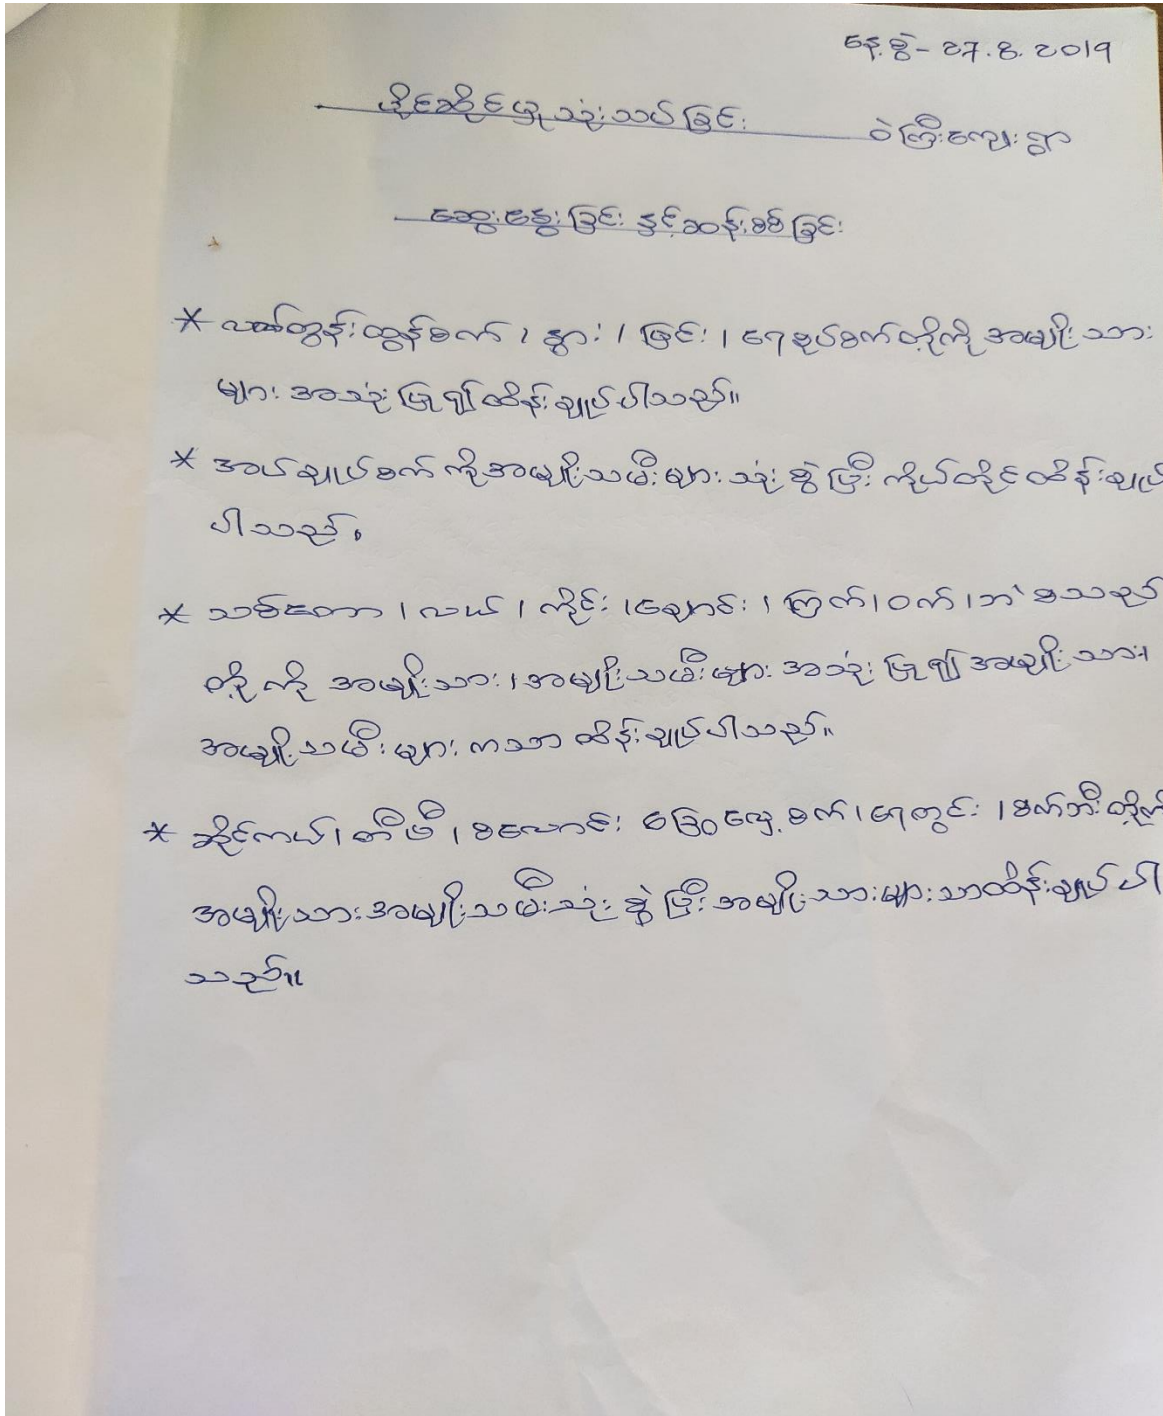 နေ့စွဲ- 27.8.2019
ပိုင်ဆိုင်ယူသုံးသပ်ခြင်း ဝဲကြီးကျေးရွာ
ဆွေးနွေးခြင်း နှင့်ဆန်းစစ်ခြင်း
* လက်တွန်းထွန်စက်၊ နွား၊ မြင်း၊ ရေစုပ်စက်တို့ကို အမျိုးသား
များ အသုံးပြု၍ထိန်းချုပ်ပါသည်။
* အပ်ချုပ်စက်ကိုအမျိုးသမီးများသုံးစွဲပြီး ကိုယ်တိုင်ထိန်းချုပ်
ပါသည်။
* သစ်တော၊ လယ်၊ ကိုင်း၊ချောင်း၊ ကြက်၊ဝက်၊ဘဲ စသည်
တို့ကို အမျိုးသား၊အမျိုးသမီးများ အသုံးပြု၍ အမျိုးသား၊
အမျိုးသမီးများ ကသာ ထိန်းချုပ်ပါသည်။
* ဆိုင်ကယ်၊ တီဗီ၊ စလောင်း ခြွေလှေ့စက်၊ရေတွင်း ၊စက်ဘီးတို့ကို
အမျိုးသားအမျိုးသမီးသုံးစွဲပြီးအမျိုးသားများသာထိန်းချုပ်ပါ
သည်။